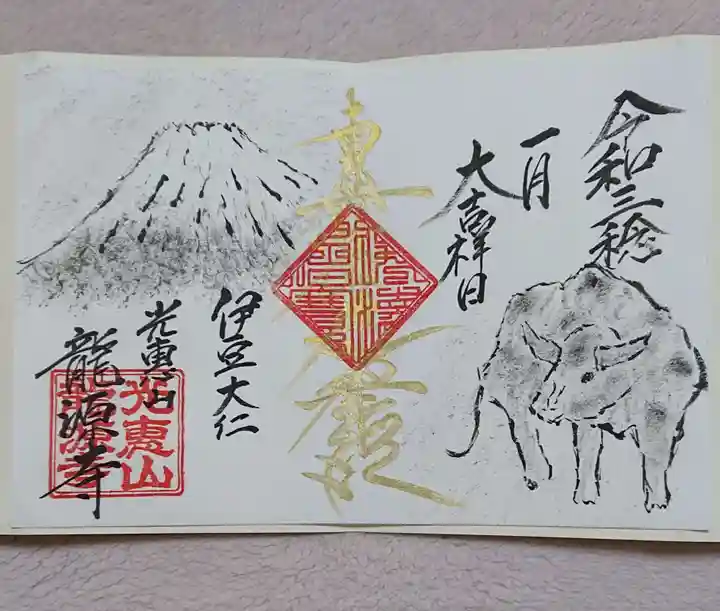 令和三穐
一月
大吉祥日
華厳
伊豆大仁
光恵山
龍源寺
光恵山
龍源寺